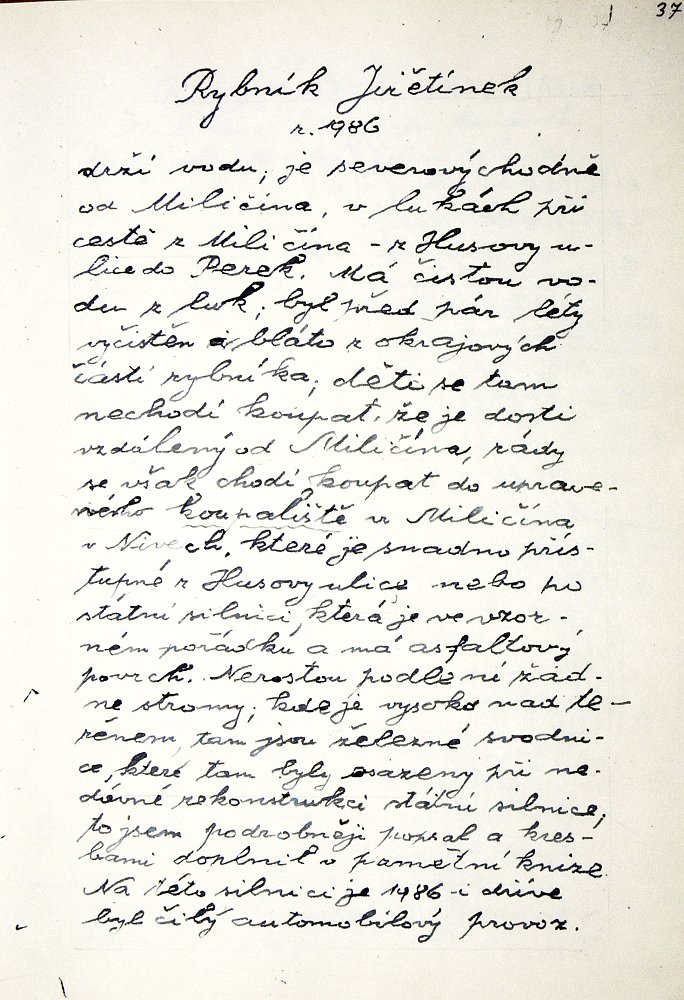 37
Rybník Jiřetínek
r. 1986
drží vodu, je severovýchodně
od Miličína, v lukách při
cestě z Miličína - z Husovy u-
lice do Perek. Má čistou vo-
du z luk, byl před pár léty
vyčistěn i bláto z okrajových
částí rybníka, děti se tam
nechodí koupat, že je dosti
vzdálený od Miličína, rády
se však chodí koupat do uprave-
ného koupaliště v Miličína
v Nivech, které je snadno přís-
tupné z Husovy ulice nebo po
státní silnici, která je ve vzor-
ném pořádků a má asfaltový
povrch. Nerostou podlé ní žád-
ne stromy, kde je vysoko nad te-
rénem, tam jsou železné svodni-
ce, které tam byly osazeny při ne-
dávné rekonstrukci státní silnice,
to jsem podrobněji popsal a kres-
bami doplnil v pamětní knize.
Na této silnici je 1986 i dříve
byl čilý automobilový provoz.